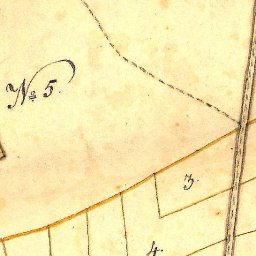 No 5.
3.
4.